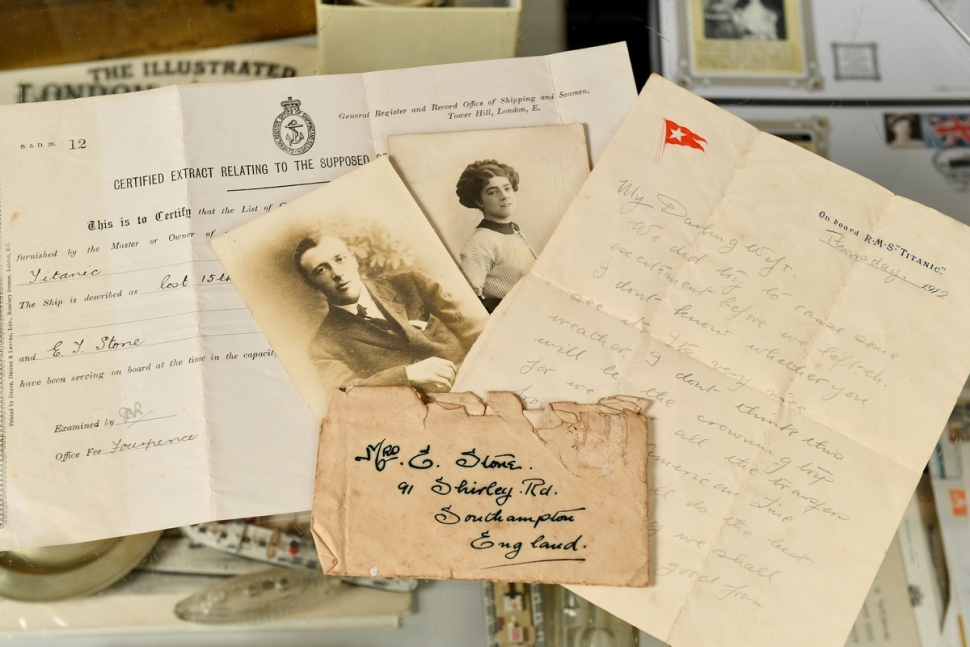 THE ILLUSTRATED
LONDON
B. & D. 28. 12
General Register and Record Office of Shipping and Seamen,
Tower Hill, London, E.
CERTIFIED EXTRACT RELATING TO THE SUPPOSED
This is to Certify that the List of
furnished by the Master or Owner of
Titanic
The Ship is described as lost 15th
and E. J. Stone
have been serving on board at the time in the capacity
Examined by
Office Fee Fourpence
On board R.M.S. "TITANIC."
Thursday 1912
My Darling Wife.
We did try to cause some
excitement before we left
I don't know whether you
see
weather. I dont think this
will be the crowning trip
for we all the transfers
American Line
do the best
we shall
good from
Mrs. E. Stone.
91 Shirley. Rd.
Southampton
England.